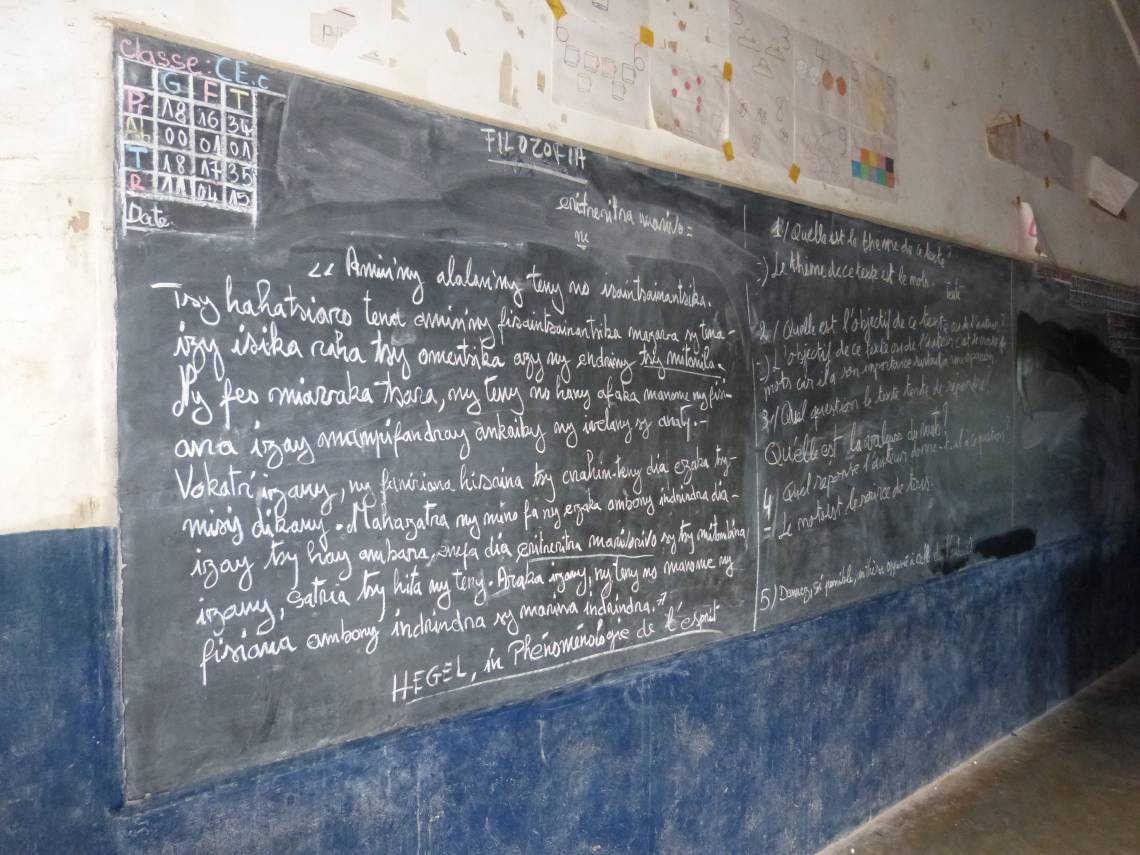 Classe: CE.c
G F T
Pr 18 16 34
Ab 00 01 01
T 18 17 35
R 11 04 15
Date:
FILOZOFIA
eritreritra manivo =
ny
« Amin'ny alalan'ny teny no isaintsainantsika.
Tsy hahatsiaro tena amin'ny fisaintsainantsika mazava sy tena-
izy isika raha tsy omentsika azy ny endriny tsy mitonila.
Ny feo miavaka tsara, ny teny no hany afaka manome ny fisi-
ana izay mampifandray ankaiby ny ivelany sy anaty.-
Vokatr'izany, ny faniriana hisaina tsy anahin-teny dia ezaka tsy-
misy dikany. Mahazatra ny mino fa ny ezaka ambony indrindra dia-
izay tsy hay ambara, anefa dia eritreritra manivonivo sy tsy mitombina
izany, satria tsy hita ny teny. Araka izany, ny teny no manome ny
fisiana ambony indrindra sy marina indrindra. »
HEGEL, in Phénoménologie de l'esprit
1/ Quelle est le thème de ce texte
:) Le thème de ce texte est le mots.
texte
2/ Quelle est l'objectif de ce texte ou de l'auteur?
:) L'objectif de ce texte ou de l'auteur c'est le monde de
mots car il a son importance
3/ Quel question le texte tente de repondre?
Quelle est la valeur du mot?
4/ Quel réponse l'auteur donne-t-il à ce question
- Le mot est le source de tous.
5) Donnez, si possible, un thèse opposé à celle de l'auteur